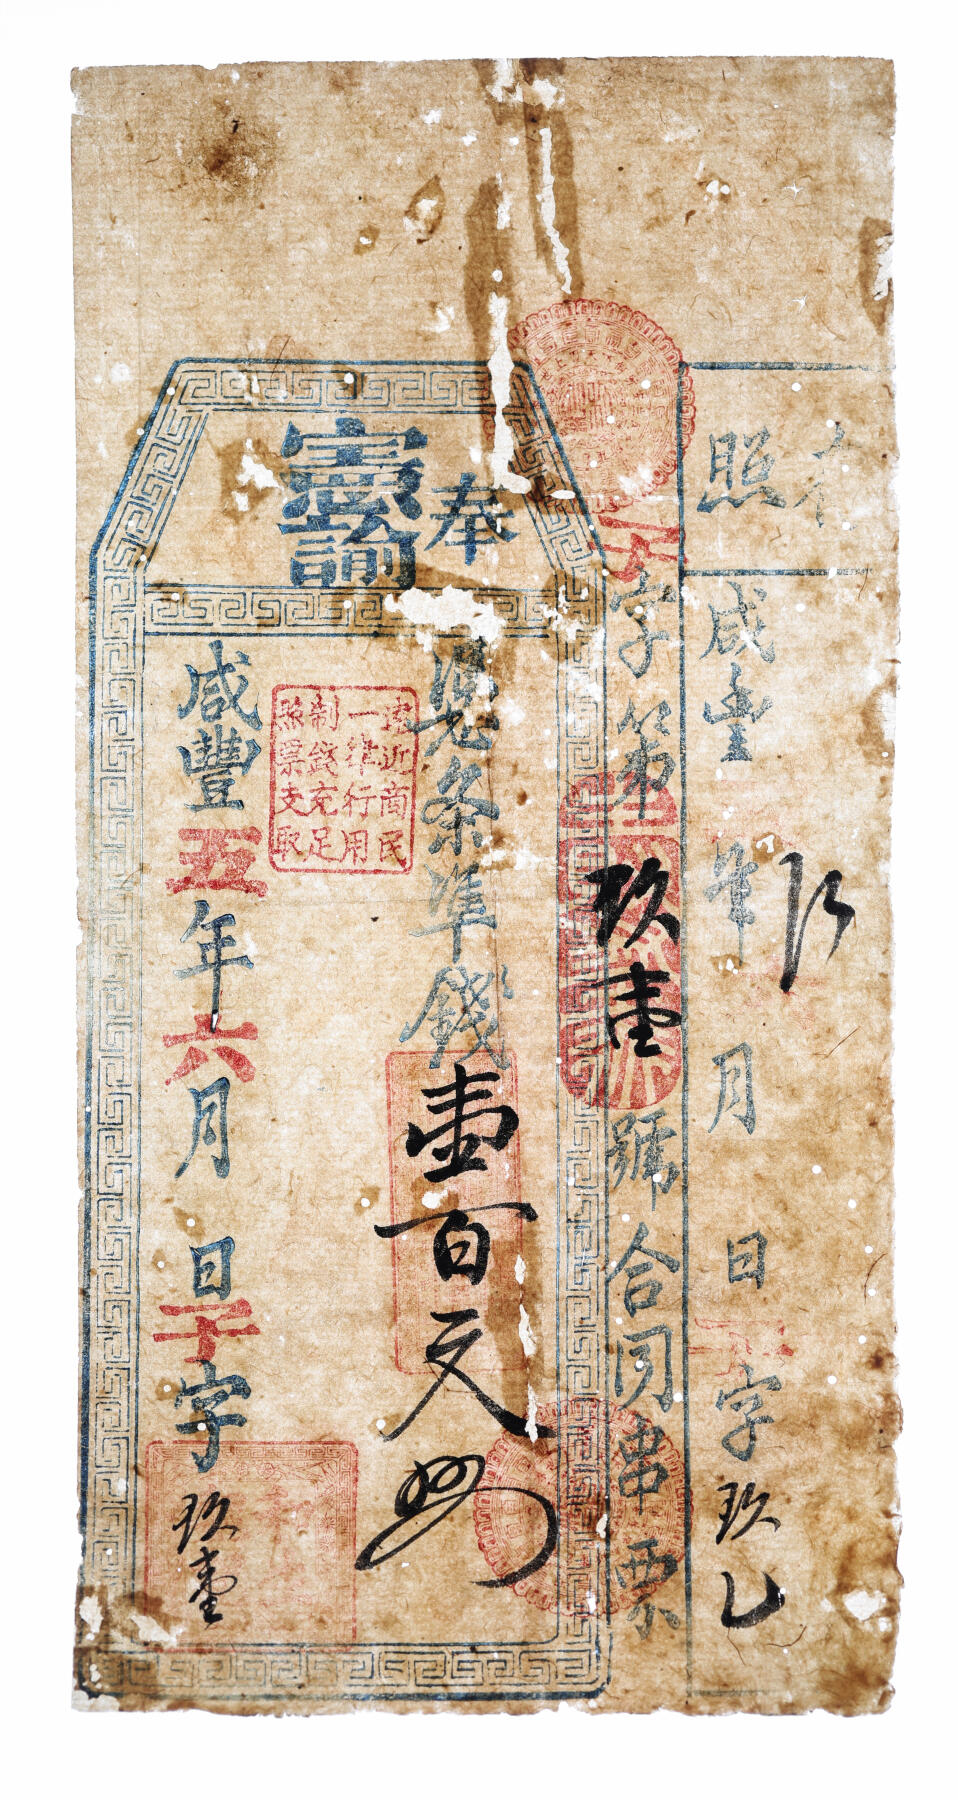 照
咸豐年月日字玖乙
千字第玖壹號合同串票
奉
憲諭
憑条準錢壹百文
遠近商民
一律行用
制錢充足
照票支取
咸豐五年六月日千字玖壹